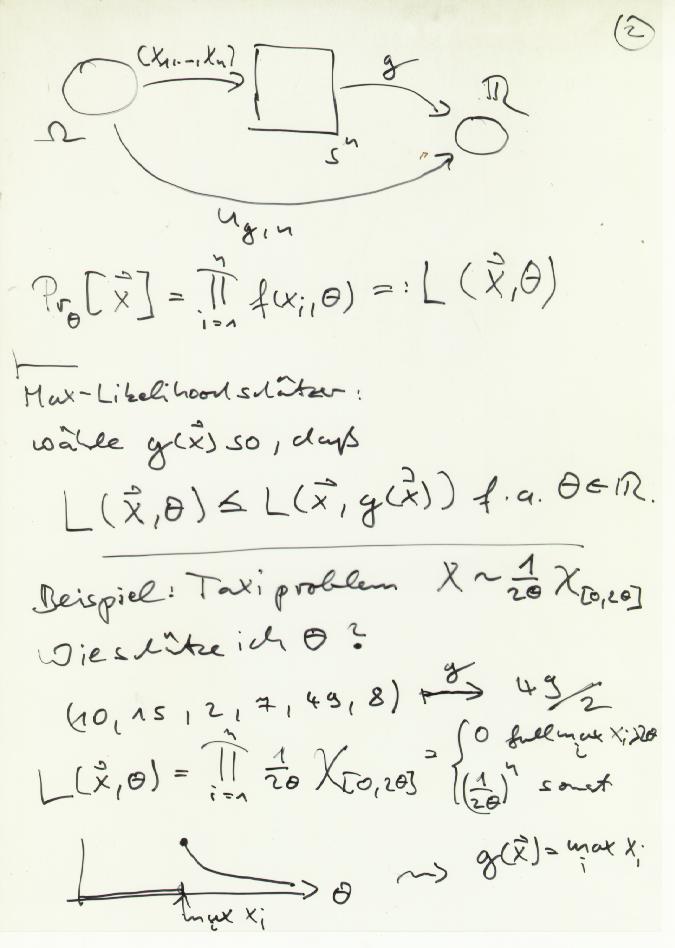 ②
(X₁,...,Xₙ) g
Ω Sⁿ ℝ
U_{g,n}
Pr_θ[x⃗] = ∏_{i=1}^{n} f(x_i, θ) =: L(x⃗, θ)
Max-Likelihoodschätzer:
wähle g(x⃗) so, daß
L(x⃗, θ) ≤ L(x⃗, g(x⃗)) f.a. θ ∈ ℝ.
Beispiel: Taxiproblem X ~ 1/2θ χ_{[0,2θ]}
Wie schätze ich θ?
(10, 15, 2, 7, 49, 8) ↦^g 49/2
L(x⃗, θ) = ∏_{i=1}^{n} 1/2θ χ_{[0,2θ]} = { 0 falls max_i x_i > 2θ
(1/2θ)ⁿ sonst
θ ⇝ g(x⃗) = max_i x_i
max_i x_i